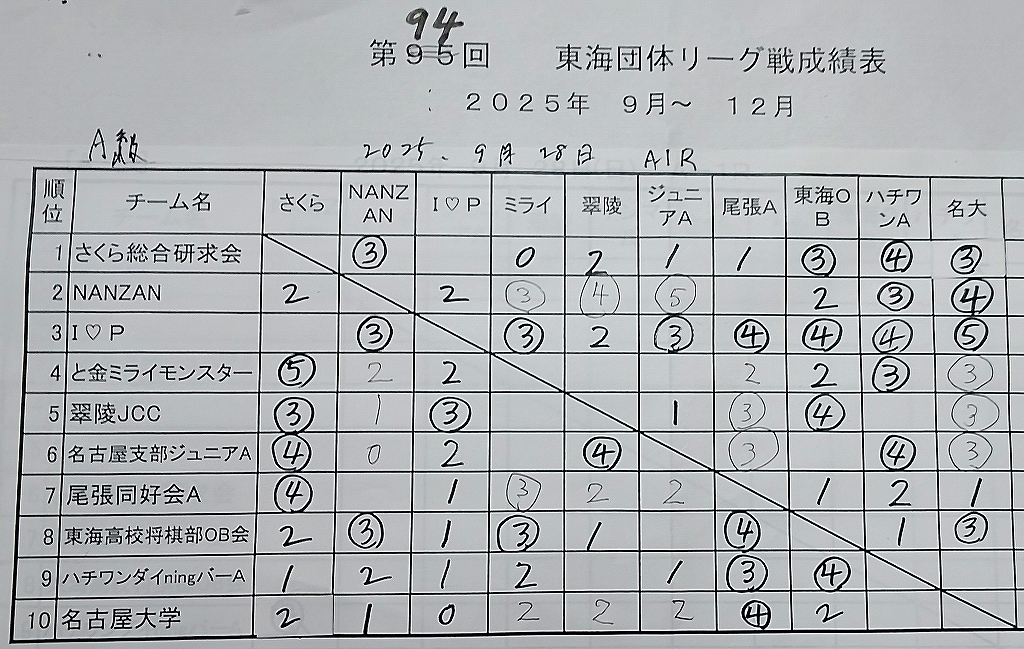 94
第95回 東海団体リーグ戦成績表
: 2025年 9月~ 12月
A級 2025.9月28日 AIR
順位 チーム名 さくら NANZAN I♡P ミライ 翠陵 ジュニアA 尾張A 東海OB ハチワンA 名大
1 さくら総合研求会 ③ 0 2 1 1 ③ ④ ③
2 NANZAN 2 2 ③ ④ ⑤ 2 ③ ④
3 I♡P ③ ③ 2 ③ ④ ④ ④ ⑤
4 と金ミライモンスター ⑤ 2 2 2 2 ③ ③
5 翠陵JCC ③ 1 ③ 1 ③ ④ ③
6 名古屋支部ジュニアA ④ 0 2 ④ ③ ④ ③
7 尾張同好会A ④ 1 ③ 2 2 1 2 1
8 東海高校将棋部OB会 2 ③ 1 ③ 1 ④ 1 ③
9 ハチワンダイningバーA 1 2 1 2 1 ③ ④
10 名古屋大学 2 1 0 2 2 2 ④ 2